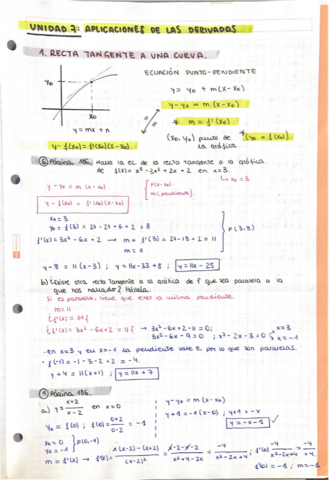 UNIDAD 7: APLICACIONES DE LAS DERIVADAS
1. RECTA TANGENTE A UNA CURVA.
ECUACIÓN PUNTO-PENDIENTE
y = y₀ + m(x-x₀)
y-y₀ = m(x-x₀)
* m = f'(x₀)
(x₀, y₀) punto de la gráfica
*(y₀ = f(x₀))
y₀
x₀
y = mx + n
y-f(x₀) = f'(x₀)(x-x₀)
⑥ Página 186. Halla la EC de la recta tangente a la gráfica
de f(x) = x³-3x²+2x+2 en x=3.
↳ x₀ = 3
y-y₀ = m(x-x₀)
y-f(x₀) = f'(x₀)(x-x₀)
x₀=3
y₀ = f(3) = 27-27+6+2 = 8
f'(x) = 3x²-6x+2 → m = f'(3) = 27-18+2 = 11
m = 11
P(3,8)
y-8 = 11(x-3) ; y = 11x-33+8 ; y = 11x-25
b) ¿Existe otra recta tangente a la gráfica de f que sea paralela a la
que has hallado? Hállala.
Si es paralela, tiene que tener la misma pendiente.
m=11
f'(x) = 11
f'(x) = 3x²-6x+2 = 11 → 3x²-6x+2-11 = 0;
3x²-6x-9=0 ; x²-2x-3=0
x=3
x=-1
-en x=3 y en x=-1 la pendiente vale 11, por lo que son paralelas.
f(-1) = -1-3-2+2 = -4.
y+4 = 11(x+1) ; y = 11x+7
① Página 186.
a) y = x+2 / x-2 en x=0
y₀ = f(0) ; f(0) = 0+2 / 0-2 = -1
x₀=0
y₀=-1
P(0,-1)
y-y₀ = m(x-x₀)
y+1 = -1(x-0) ; y+1 = -x
y = -x-1
m = f'(x) → f'(x) = 1(x-2)-(x+2) / (x-2)² = x-2-x-2 / x²+4-2x = -4 / x²-2x+4 ; f'(0) = -4 / x²-2x+4 = -4 / +4
f'(0) = -1 ; m=-1